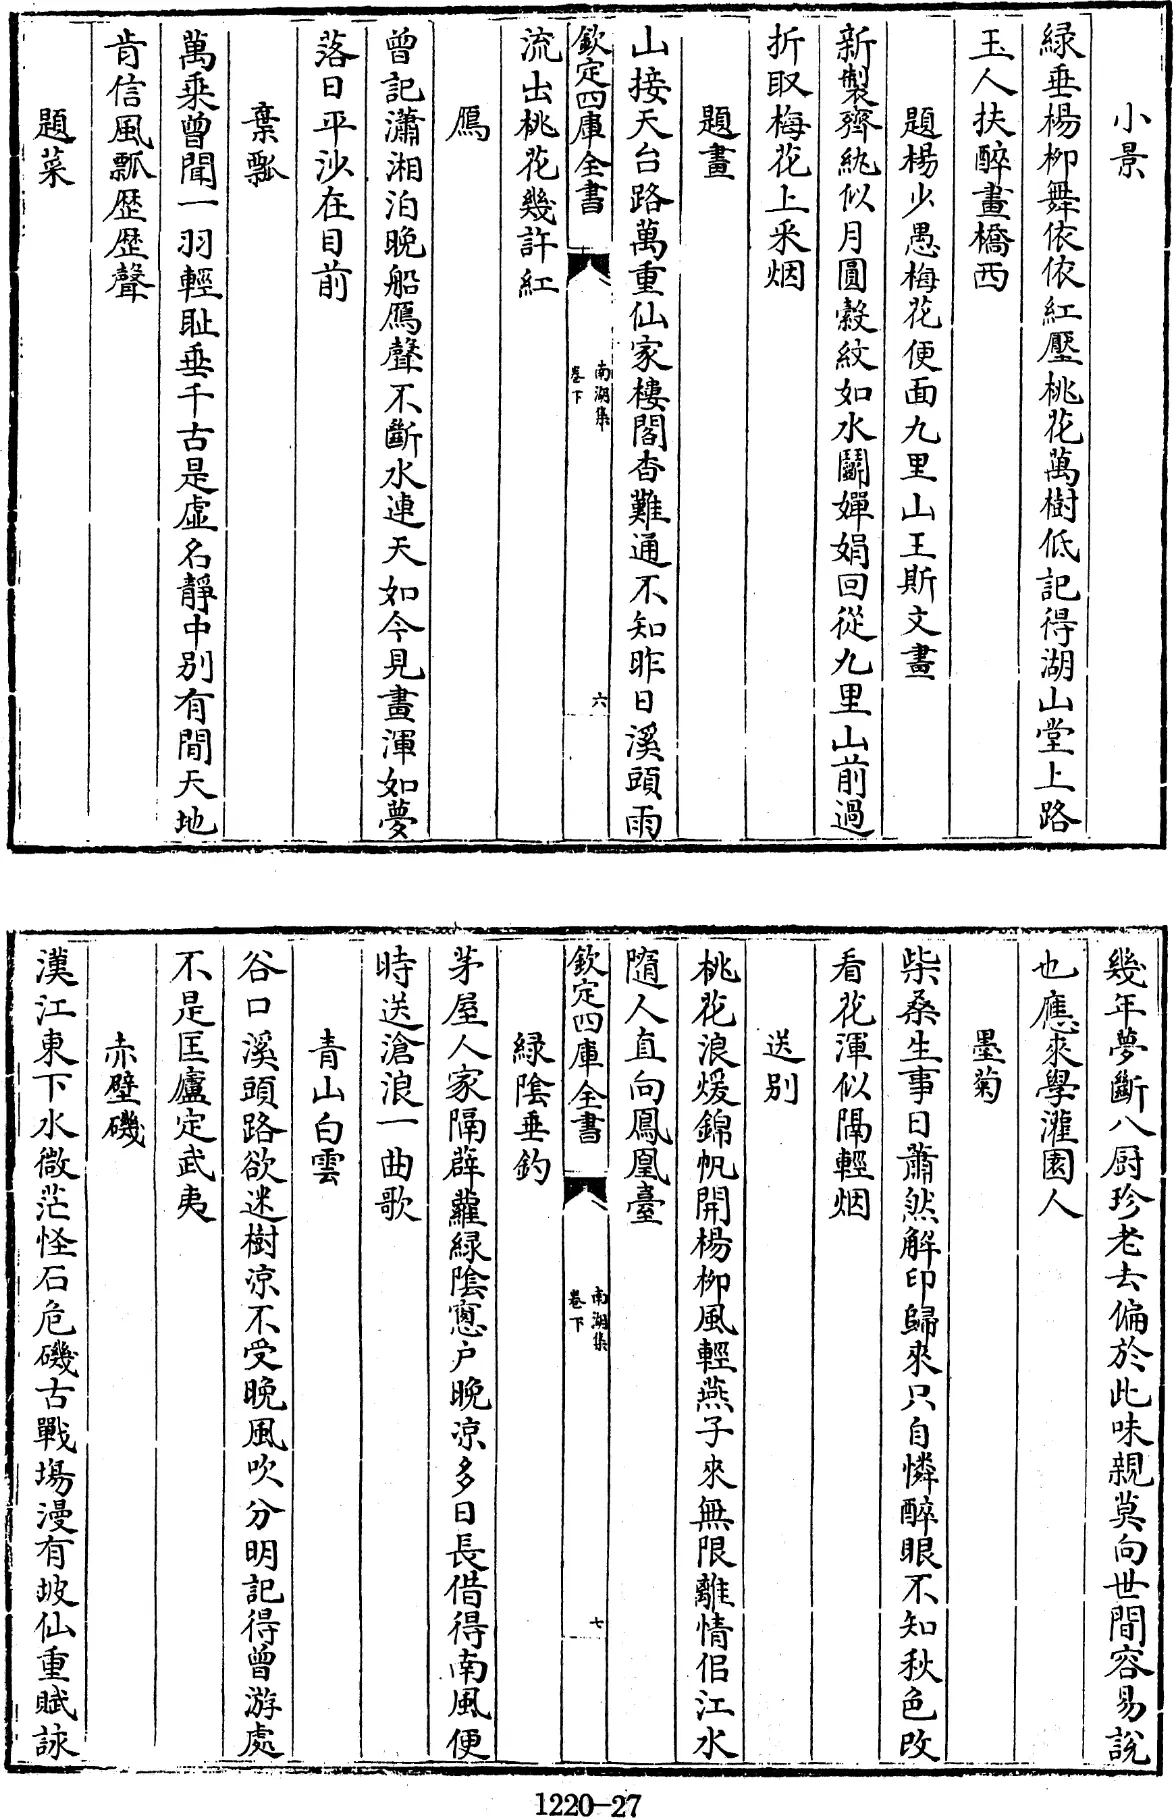 小景
緑垂楊柳舞依依紅壓桃花萬樹低記得湖山堂上路
玉人扶醉畫橋西
題楊少愚梅花便面九里山王斯文畫
新製齊紈似月圓縠紋如水鬬嬋娟回從九里山前過
折取梅花上釆烟
題畫
山接天台路萬重仙家樓閣杳難通不知昨日溪頭雨
欽定四庫全書
南湖集
卷下
六
流出桃花幾許紅
鴈
曾記瀟湘泊晚船鴈聲不斷水連天如今見畫渾如夢
落日平沙在目前
棄瓢
萬乘曾聞一羽輕耻垂千古是虛名靜中别有間天地
肯信風瓢歴歴聲
題菜
幾年夢斷八厨珍老去偏於此味親莫向世間容易說
也應來學灌園人
墨菊
柴桑生事日蕭然解印歸來只自憐醉眼不知秋色改
看花渾似隔輕烟
送别
桃花浪煖錦帆開楊柳風輕燕子來無限離情佀江水
隨人直向鳳凰臺
欽定四庫全書
南湖集
卷下
七
緑陰垂釣
茅屋人家隔薜蘿緑陰窻户晩凉多日長借得南風便
時送滄浪一曲歌
青山白雲
谷口溪頭路欲迷樹凉不受晩風吹分明記得曾游處
不是匡廬定武夷
赤壁磯
漢江東下水微茫怪石危磯古戰塲漫有坡仙重賦詠
1220-27